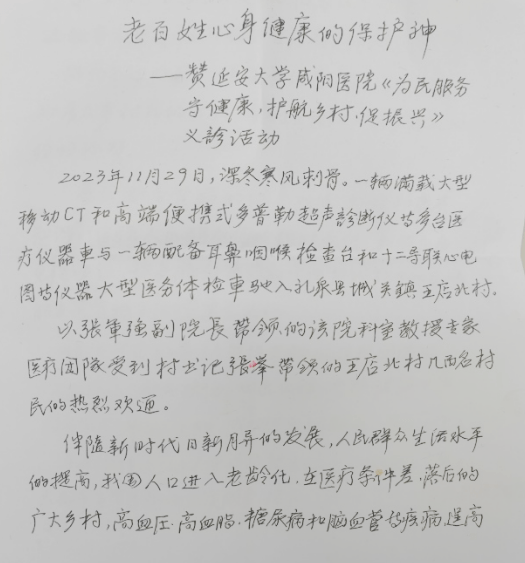 老百姓心身健康的保护神
——赞延安大学咸阳医院《为民服务
守健康，护航乡村，促振兴》
义診活动
2023年11月29日，深冬寒风刺骨。一辆满载大型
移动CT和高端便携式多普勒超声診断仪等多台医
疗仪器車与一辆配备耳鼻咽喉检查台和十二导联心电
图等仪器大型医务体检車驶入礼泉县城关鎮王店北村。
以張軍强副院長带领的该院科室教授专家
医疗团隊受到村书记張举带领的王店北村几百名村
民的热烈欢迎。
伴随新时代日新月异的发展，人民群众生活水平
的提高，我国人口进入老龄化，在医疗条件差，落后的
广大乡村，高血压、高血脂、糖尿病和脑血管等疾病，提高